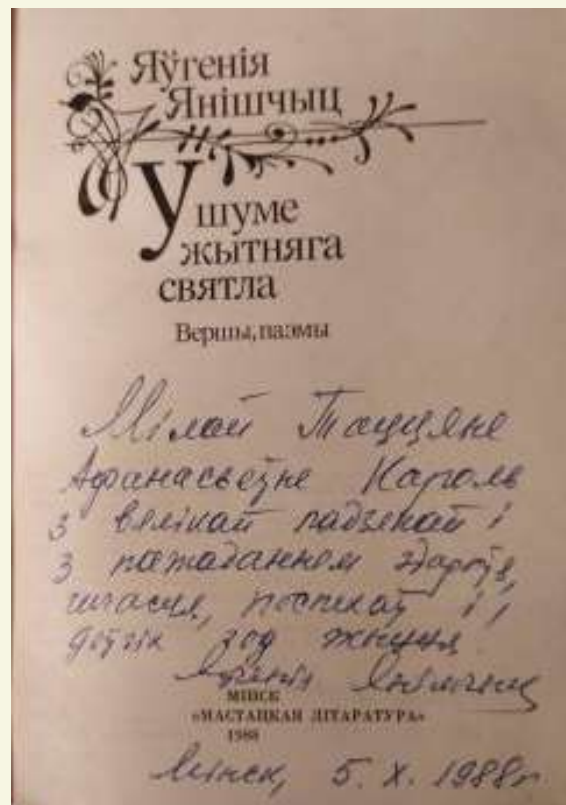 Яўгенія
Янішчыц
У шуме
жытняга
святла
Вершы, паэмы
Мілай Таццяне
Афанасьеўне Кароль
з вялікай падзякай і
з пажаданнем здароўя,
шчасця, поспехаў і
доўгіх год жыцця
Яўгенія Янішчыц
МІНСК
«МАСТАЦКАЯ ЛІТАРАТУРА»
1988
Мінск, 5. X. 1988г.